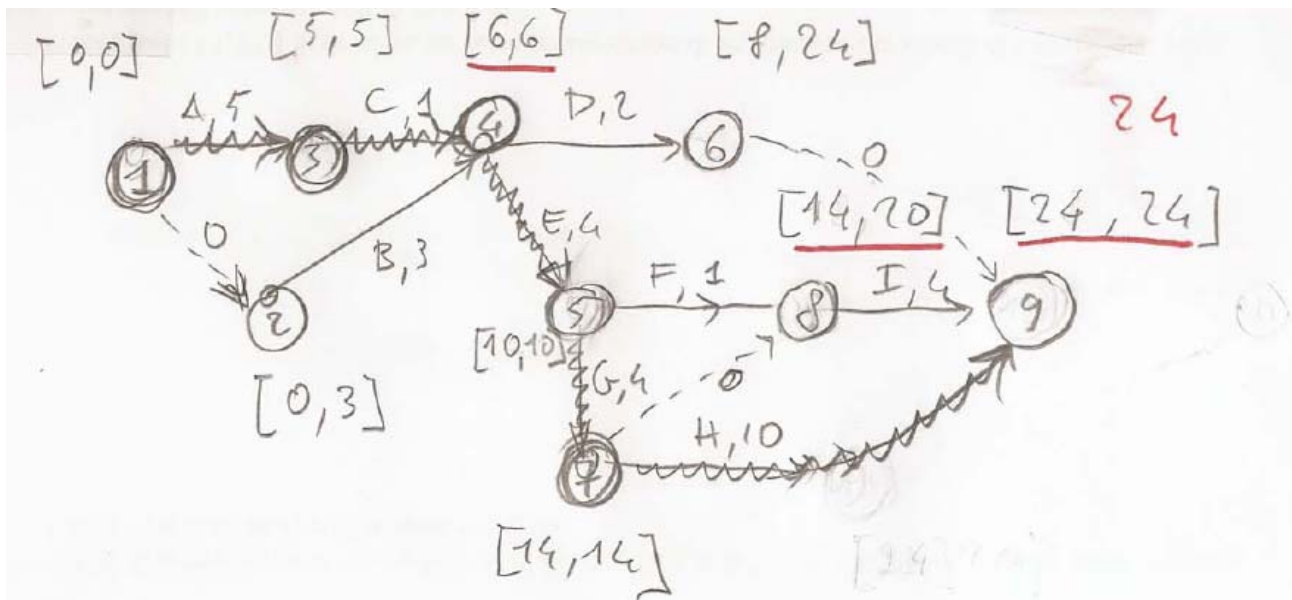 [0,0] [5,5] [6,6] [8,24]
24
A,5 C,1 D,2
1 3 4 6 0
0 B,3 E,4 [14,20] [24,24]
2 5 F,1 8 I,4 9
[10,10]
[0,3] G,4 0
7 H,10
[14,14] [24